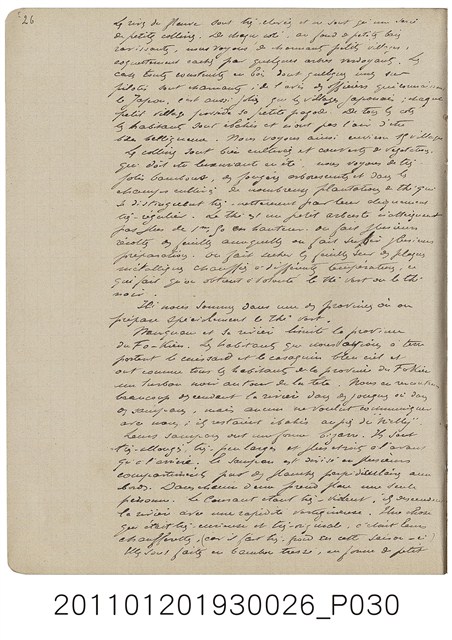 26
Les rives du fleuve sont très élevées et ne sont qu'une suite
de petites collines. De chaque côté, au fond de petites baies
ravissantes, nous voyons de charmants petits villages,
coquettement cachés par quelques arbres verdoyants. Les
cases toutes construites en bois dont quelques unes sur
pilotis sont charmantes; de l'avis des officiers qui connaissent
le Japon, sont aussi jolies que les villages japonais; chaque
petit village possède sa petite pagode. De tous les côtés
les habitants sont ébahis et n'ont pas l'air d'être
bien belliqueux. Nous voyons ainsi environ 15 villages
Les collines sont bien cultivées et couvertes de végétation
qui doit être luxuriante en été. nous voyons de très
jolis bambous, des fougères arborescentes et dans les
champs cultivés de nombreuses plantations de thé qui
se distinguent très nettement par leur alignement
très régulier. Le thé est un petit arbuste n'atteignant
pas plus de 1m,50 en hauteur. On fait plusieurs
récoltes des feuilles annuelles on fait subir plusieurs
préparations. On fait sécher les feuilles sur des plaques
métalliques chauffées à différentes températures, ce
qui fait qu'on obtient à volonté le thé vert ou le thé
noir.
Ici nous sommes dans une des provinces où on
prépare spécialement le thé vert.
et sa rivière limite la province
du Fo-Kien. Les habitants que nous à terre
portent le et le casaquin bleu ciel et
ont comme tous les habitants de la province du Fo Kien
un turban noir autour de la tête. Nous en rencontrons
beaucoup descendant la rivière dans des jonques ou dans
des sampans, mais aucun ne voulait communiquer
avec nous; ils restaient ébahis au
Leurs sampans ont une forme bizarre. Ils sont
très allongés, très peu larges et plus étroits à l'avant
qu'à l'arrière. Le sampan est divisé en plusieurs
compartiments par des planches perpendiculaires aux
bords. Dans chacun d'eux prend place une seule
personne. Le courant étant très violent, ils descendaient
la rivière avec une rapidité vertigineuse. Une chose
qui était très curieuse et très originale, c'était leurs
chaufferettes, (car il fait très froid en cette saison-ci)
Elles sont faites en bambou tressé, en forme de petit
201101201930026_P030